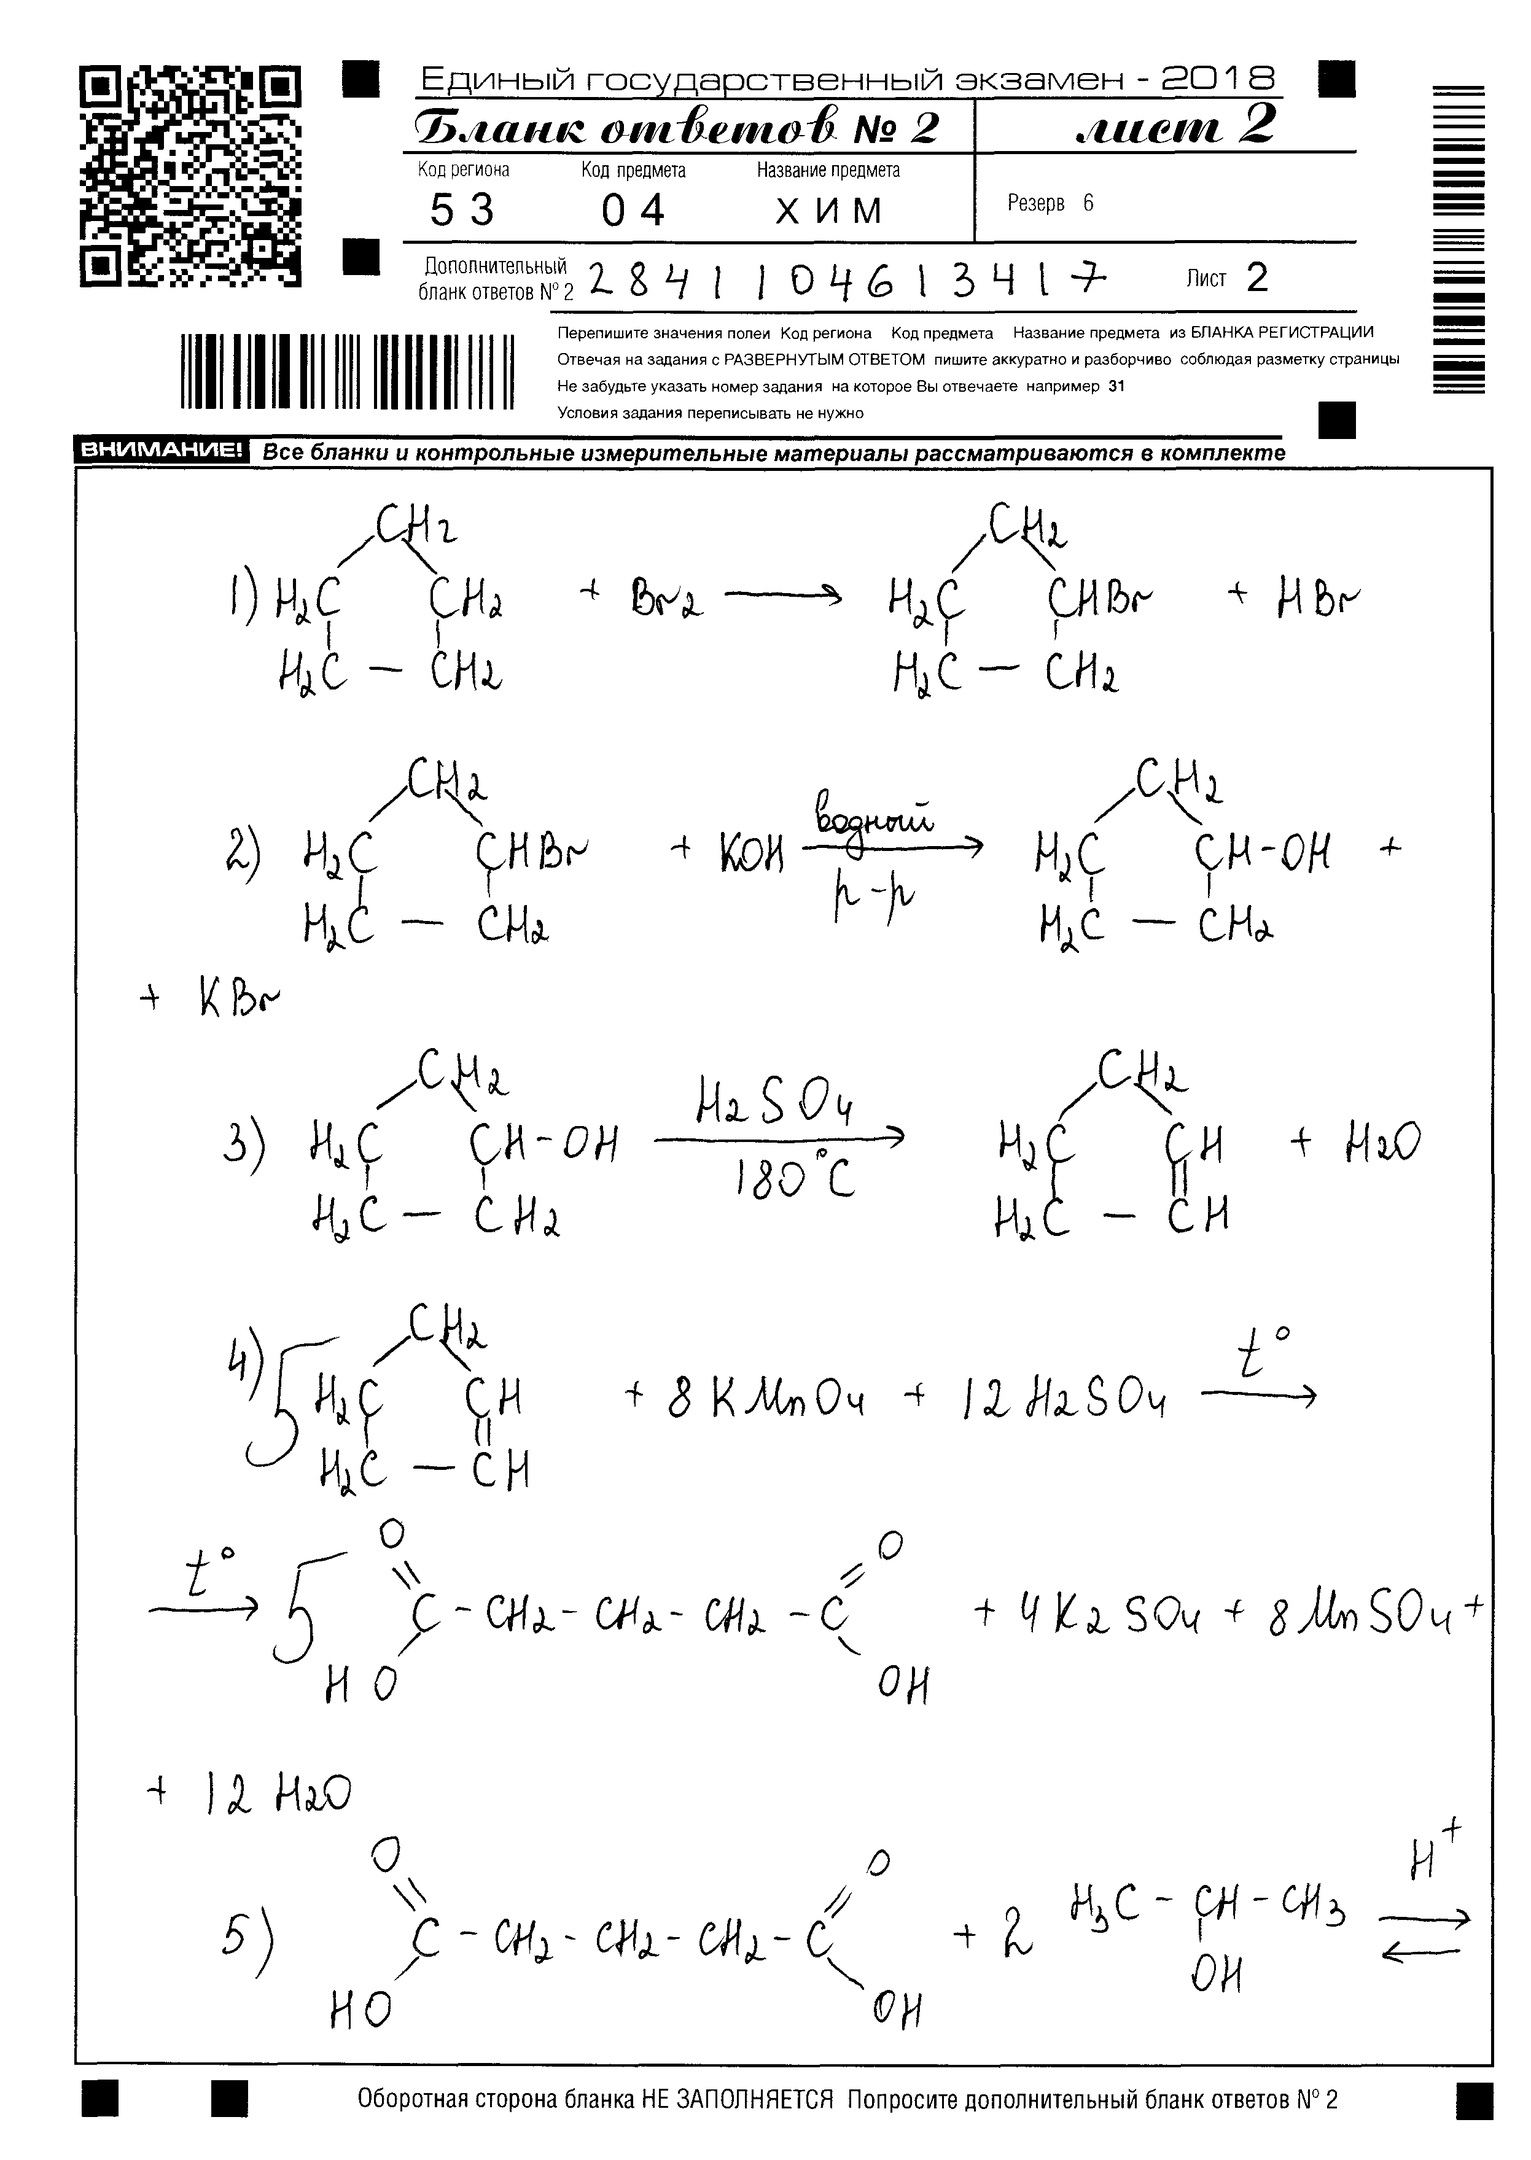 Единый государственный экзамен - 2018
Бланк ответов № 2 лист 2
Код региона Код предмета Название предмета
53 04 ХИМ Резерв 6
Дополнительный бланк ответов № 2 2841104613417 Лист 2
Перепишите значения полей Код региона Код предмета Название предмета из БЛАНКА РЕГИСТРАЦИИ
Отвечая на задания с РАЗВЕРНУТЫМ ОТВЕТОМ пишите аккуратно и разборчиво соблюдая разметку страницы
Не забудьте указать номер задания на которое Вы отвечаете например 31
Условия задания переписывать не нужно
ВНИМАНИЕ! Все бланки и контрольные измерительные материалы рассматриваются в комплекте
CH2 CH2
1) H2C CH2 + Br2 → H2C CHBr + HBr
H2C — CH2 H2C — CH2
CH2 CH2
2) H2C CHBr + KOH водный р-р → H2C CH-OH +
H2C — CH2 H2C — CH2
+ KBr
CH2 CH2
3) H2C CH-OH H2SO4 180°C → H2C CH + H2O
H2C — CH2 H2C — CH
CH2
4) 5 H2C CH + 8KMnO4 + 12H2SO4 t° →
H2C — CH
O O
t° → 5 C - CH2 - CH2 - CH2 - C + 4K2SO4 + 8MnSO4 +
HO OH
+ 12H2O
O O
5) C - CH2 - CH2 - CH2 - C + 2 H3C - CH - CH3 H+ ⇄
HO OH OH
Оборотная сторона бланка НЕ ЗАПОЛНЯЕТСЯ Попросите дополнительный бланк ответов № 2